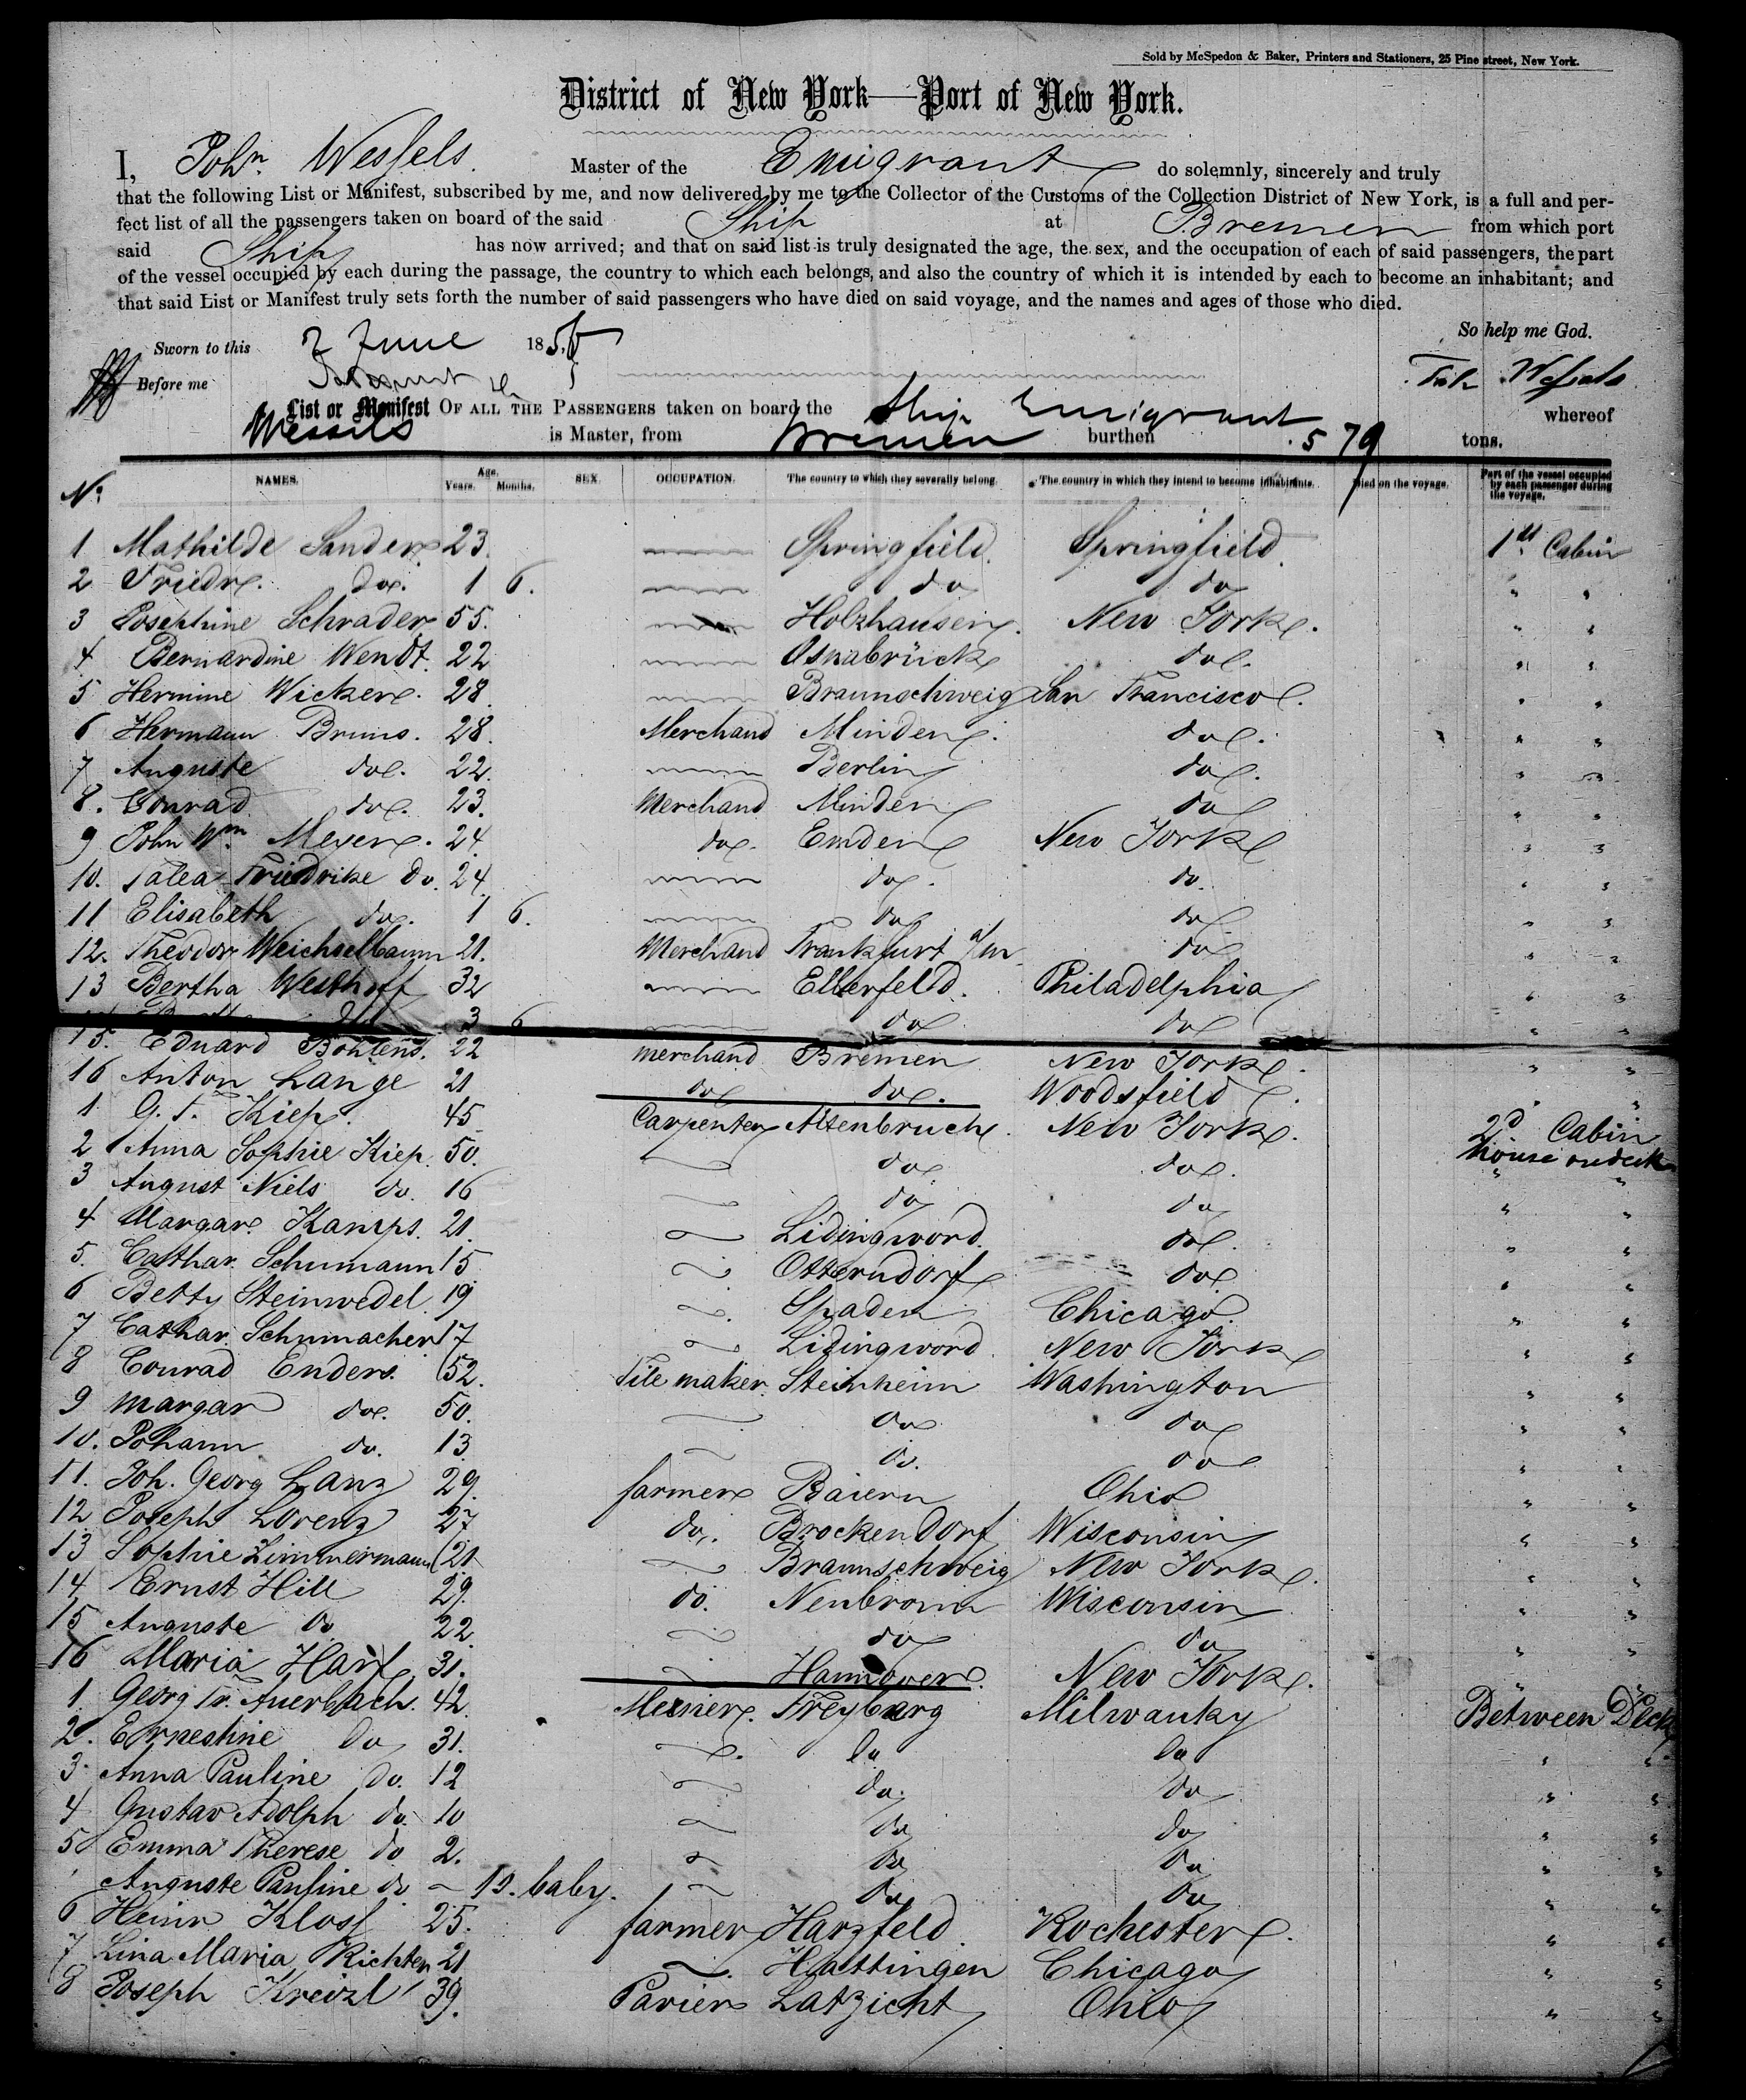 Sold by McSpedon & Baker, Printers and Stationers, 25 Pine street, New York.
District of New York—Port of New York.
I, Joh.n Wessels Master of the Emigrant do solemnly, sincerely and truly
that the following List or Manifest, subscribed by me, and now delivered by me to the Collector of the Customs of the Collection District of New York, is a full and per-
fect list of all the passengers taken on board of the said Ship at Bremen from which port
said Ship has now arrived; and that on said list is truly designated the age, the sex, and the occupation of each of said passengers, the part
of the vessel occupied by each during the passage, the country to which each belongs, and also the country of which it is intended by each to become an inhabitant; and
that said List or Manifest truly sets forth the number of said passengers who have died on said voyage, and the names and ages of those who died.
So help me God.
Sworn to this 2 June 185
Before me Wessels
List or Manifest OF ALL THE PASSENGERS taken on board the Ship Emigrant whereof
Wessels is Master, from Bremen burthen 579 tons.
No NAMES. Age. Years. Months. SEX. OCCUPATION. The country to which they severally belong. The country in which they intend to become inhabitants. Died on the voyage. Part of the vessel occupied by each passenger during the voyage.
1 Mathilde Sander 23. Springfield. Springfield. 1st Cabin
2 Friedr. do. 1 6. do do " "
3 Josephine Schrader 55. Holzhausen. New York. " "
4 Bernardine Wendt. 22 Osnabrück do. " "
5 Hermine Wicker. 28. Braunschweig San Francisco. " "
6 Hermann Bruns. 28. Merchand Minden. do. " "
7 Auguste do. 22. Berlin do. " "
8. Conrad do. 23. Merchand Minden do " "
9 John Wm. Meyer. 24. do. Emden New York " "
10. Talea Friedrike do. 24. do. do. " "
11 Elisabeth do. 1 6. do do " "
12. Theodor Weichselbaum 21. Merchand Frankfurt a/m do " "
13 Bertha Westhoff 32 Elberfeld. Philadelphia " "
do 3 6 do do " "
15. Eduard Bohlens. 22 merchand Bremen New York. " "
16 Anton Lange 21 do do. Woodsfield. " "
1 G. F. Kiep. 45 Carpenter Altenbruch. New York. 2d Cabin
2 Anna Sophie Kiep. 50. do do. house on deck
3 August Niels do. 16 do do " "
4 Margar. Kamps. 21. Lidingword. do. " "
5. Cathar. Schumann 15 Otterndorf do " "
6 Betty Steinwedel. 19 Spaden Chicago. " "
7 Cathar. Schumacher 17 Lidingword. New York " "
8 Conrad Enders. 52. Tile maker. Steinheim Washington " "
9 Margar do. 50. do do " "
10. Johann do. 13 do. do " "
11. Joh. Georg Lanz 29. farmer Baiern Ohio " "
12 Joseph Lorenz 27 do. Brockendorf Wisconsin " "
13 Sophie Zimmermann 21 Braunschweig New York. " "
14 Ernst Hill 29. do. Neubronn Wisconsin " "
15 Auguste do 22. do do " "
16 Maria Harf 31. Hannover. New York. " "
1 Georg Fr. Auerbach. 42. Freyburg Milwauky Between Deck
2. Ernestine do 31. do do " "
3. Anna Pauline do. 12 do. do " "
4 Gustav Adolph do. 10 do do " "
5 Emma Therese do 2. do do " "
Auguste Pauline do baby. do do " "
6 Heinr Kloss 25. farmer Harzfeld. Rochester. " "
7 Lina Maria Richter 21 Hattingen Chicago " "
8 Joseph Kreizl 39. Latzicht Ohio " "